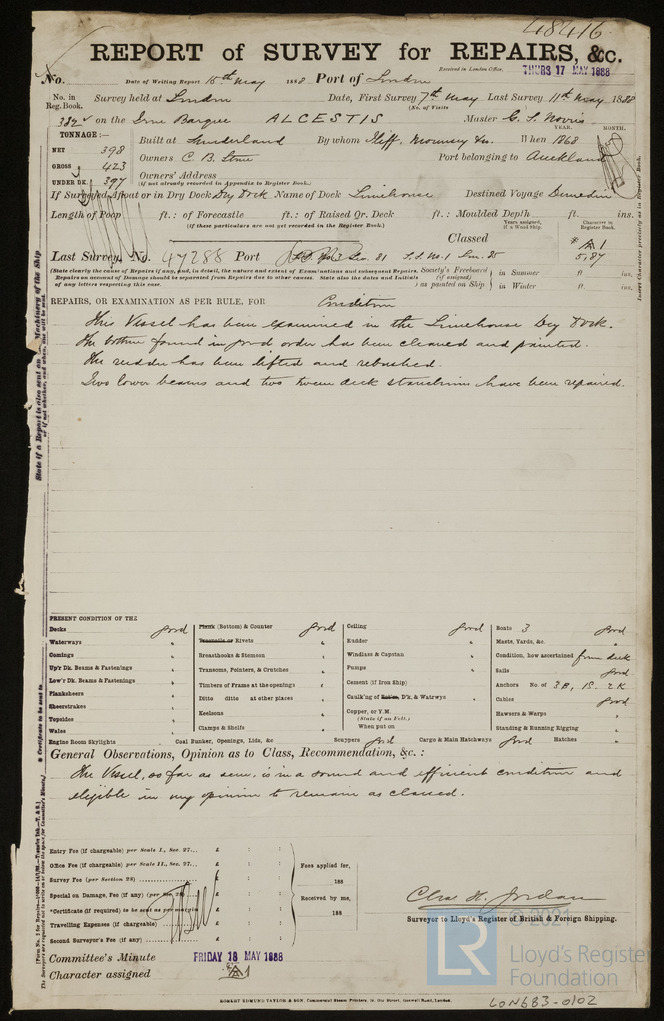 48416
REPORT of SURVEY for REPAIRS, &c.
Received in London Office, THURS 17 MAY 1888
No. Date of Writing Report 15th May 1888 Port of London
No. in Reg. Book. Survey held at London Date, First Survey 7th May Last Survey 11th May 1888
(No. of Visits
382 on the Iron Barque ALCESTIS Master C. S. Norris
TONNAGE:— YEAR. MONTH.
NET 398 Built at Sunderland By whom Iliff, Mounsey & Co. When 1868
GROSS 423 Owners C. B. Stone Port belonging to Auckland
UNDER DK. 397 Owners' Address
(if not already recorded in Appendix to Register Book.)
If Surveyed Afloat or in Dry Dock Dry Dock Name of Dock Limehouse Destined Voyage Dunedin
Length of Poop ft.: of Forecastle ft.: of Raised Qr. Deck ft.: Moulded Depth ft. ins.
(If these particulars are not yet recorded in the Register Book.)
Years assigned, if a Wood Ship.
Character in Register Book.
Classed
A 1
5,87
Last Survey, No. 47288 Port
(State clearly the cause of Repairs if any, and, in detail, the nature and extent of Examinations and subsequent Repairs.
Repairs on account of Damage should be separated from Repairs due to other causes. State also the dates and Initials
of any letters respecting this case.
Society's Freeboard (if assigned) as painted on Ship
in Summer ft. ins.
in Winter ft. ins.
REPAIRS, OR EXAMINATION AS PER RULE, FOR Condition
This Vessel has been examined in the Limehouse Dry Dock.
The bottom found in good order has been cleaned and painted.
The rudder has been lifted and rebushed.
Two lower beams and two tween deck stanchions have been repaired.
PRESENT CONDITION OF THE
Decks good
Waterways "
Comings "
Up'r Dk. Beams & Fastenings "
Low'r Dk. Beams & Fastenings "
Planksheers "
Sheerstrakes "
Topsides "
Wales "
Engine Room Skylights
Plank (Bottom) & Counter good
Treenails or Rivets "
Breasthooks & Stemson "
Transoms, Pointers, & Crutches "
Timbers of Frame at the openings "
Ditto ditto at other places "
Keelsons "
Clamps & Shelfs "
Coal Bunker, Openings, Lids, &c
Ceiling good
Rudder "
Windlass & Capstan "
Pumps "
Cement (if Iron Ship) "
Caulking of Bottom, D'k, & Watrwys "
Copper, or Y.M.
(State if on Felt.)
When put on
Scuppers good
Cargo & Main Hatchways good
Boats 3 good
Masts, Yards, &c. "
Condition, how ascertained from deck
Sails good
Anchors No. of 3B, 1S, 2K
Cables good
Hawsers & Warps "
Standing & Running Rigging "
Hatches "
General Observations, Opinion as to Class, Recommendation, &c.:
The Vessel, so far as seen, is in a sound and efficient condition and
eligible in my opinion to remain as classed.
Entry Fee (if chargeable) per Scale I., Sec. 27... £ : :
Office Fee (if chargeable) per Scale II., Sec. 27... £ : :
Survey Fee (per Section 28) £ : :
Special on Damage, Fee (if any) (per Sec. 28) £ : :
*Certificate (if required) to be sent as per margin £ : :
Travelling Expenses (if chargeable) £ : :
Second Surveyor's Fee (if any) £ : :
Fees applied for,
188
Received by me,
188
Chas H. Jordan
Surveyor to Lloyd's Register of British & Foreign Shipping.
Committee's Minute FRIDAY 18 MAY 1888
Character assigned A1
ROBERT EDMUND TAYLOR & SON, Commercial Steam Printers, 19, Old Street, Goswell Road, London.
© 2021
LR
Lloyd's Register
Foundation
LON683-0102